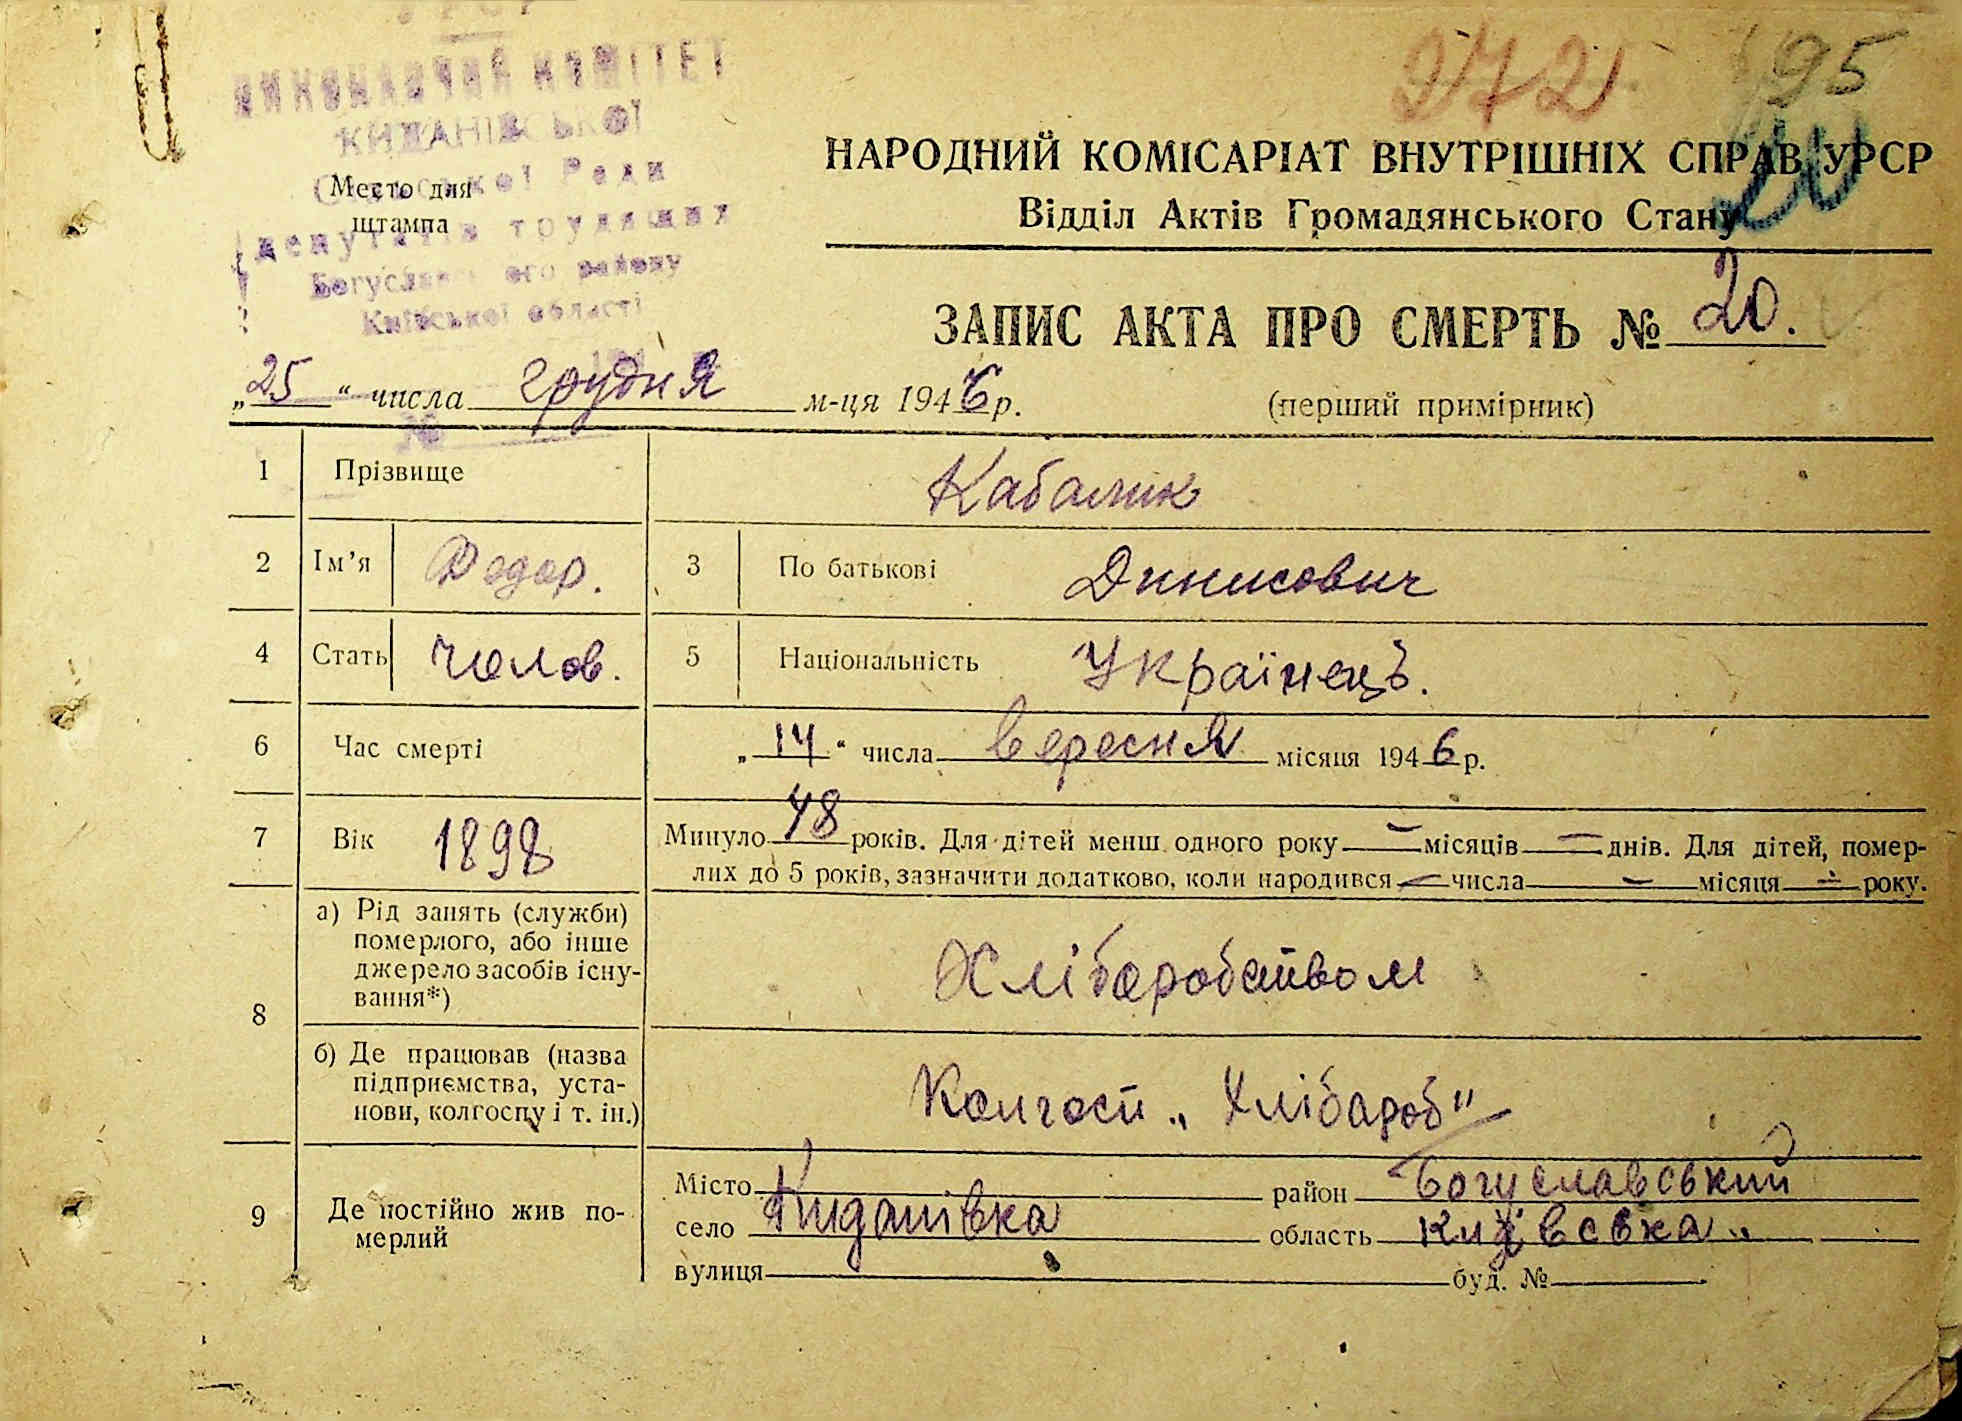 УРСР
ВИКОНАВЧИЙ КОМІТЕТ
КИДАНІВСЬКОЇ
Сільської Ради
депутатів трудящих
Богуславського району
Київської області
Место для
штампа
272
95
20
НАРОДНИЙ КОМІСАРІАТ ВНУТРІШНІХ СПРАВ УРСР
Відділ Актів Громадянського Стану
ЗАПИС АКТА ПРО СМЕРТЬ № 20.
„25“ числа грудня м-ця 1946 р.
(перший примірник)
1 Прізвище Кабалик
2 Ім’я Федор. 3 По батькові Динисович
4 Стать Челов. 5 Національність Українець.
6 Час смерті „14“ числа вересня місяця 1946 р.
7 Вік 1898 Минуло 48 років. Для дітей менш одного року — місяців — днів. Для дітей, помер-
лих до 5 років, зазначити додатково, коли народився — числа — місяця — року.
8 а) Рід занять (служби)
померлого, або інше
джерело засобів існу-
вання*)
Хліборобством
б) Де працював (назва
підприємства, уста-
нови, колгоспу і т. ін.)
Колгосп „Хлібароб"
9 Де постійно жив по-
мерлий
Місто район Богуславський
село Киданівка область Київська
вулиця буд. №